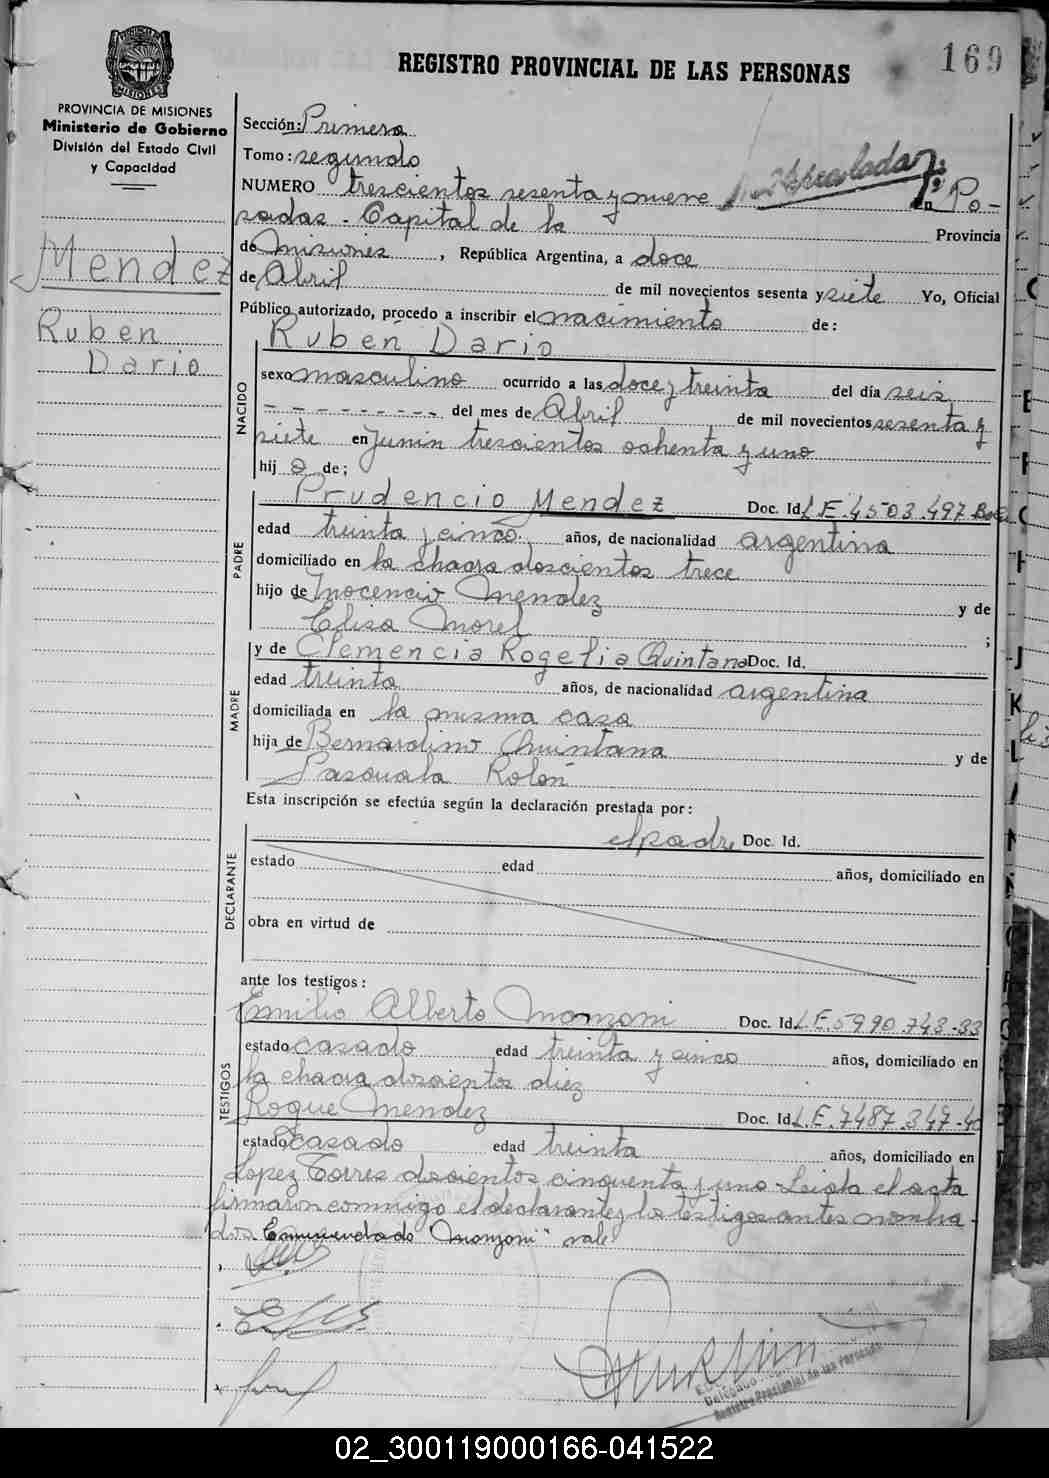 169
REGISTRO PROVINCIAL DE LAS PERSONAS
MISIONES
PROVINCIA DE MISIONES
Ministerio de Gobierno
División del Estado Civil
y Capacidad
Mendez
Ruben
Dario
Sección: Primera
Tomo: segundo
NUMERO trescientos sesenta y nueve en Po-
sadas - Capital de la Provincia
de Misiones, República Argentina, a doce
de Abril de mil novecientos sesenta y siete Yo, Oficial
Público autorizado, procedo a inscribir el nacimiento de:
NACIDO
Rubén Dario
sexo masculino ocurrido a las doce y treinta del día seis
- - - - - - - - - del mes de Abril de mil novecientos sesenta y
siete en Junin trescientos ochenta y uno
hij o de;
PADRE
Prudencio Mendez Doc. Id. L.E. 4503.497
edad treinta y cinco años, de nacionalidad argentina
domiciliado en la chacra doscientos trece
hijo de Inocencio Mendez y de
Elisa Morel ;
MADRE
y de Clemencia Rogelia Quintana Doc. Id.
edad treinta años, de nacionalidad argentina
domiciliada en la misma casa
hija de Bernardino Quintana y de
Pascuala Rolón
Esta inscripción se efectúa según la declaración prestada por:
DECLARANTE
el padre Doc. Id.
estado edad años, domiciliado en
obra en virtud de
ante los testigos:
TESTIGOS
Emilio Alberto Monzoni Doc. Id. L.E. 5990.743-33
estado casado edad treinta y cinco años, domiciliado en
la chacra doscientos diez
Roque Mendez Doc. Id. L.E. 7487.347-40
estado casado edad treinta años, domiciliado en
Lopez Torres doscientos cincuenta y uno - Leida el acta
firmaron conmigo el declarante y los testigos antes nombra-
dos Enmendado "Monzoni" vale
Delegado
Registro Provincial de las Personas
02_300119000166-041522